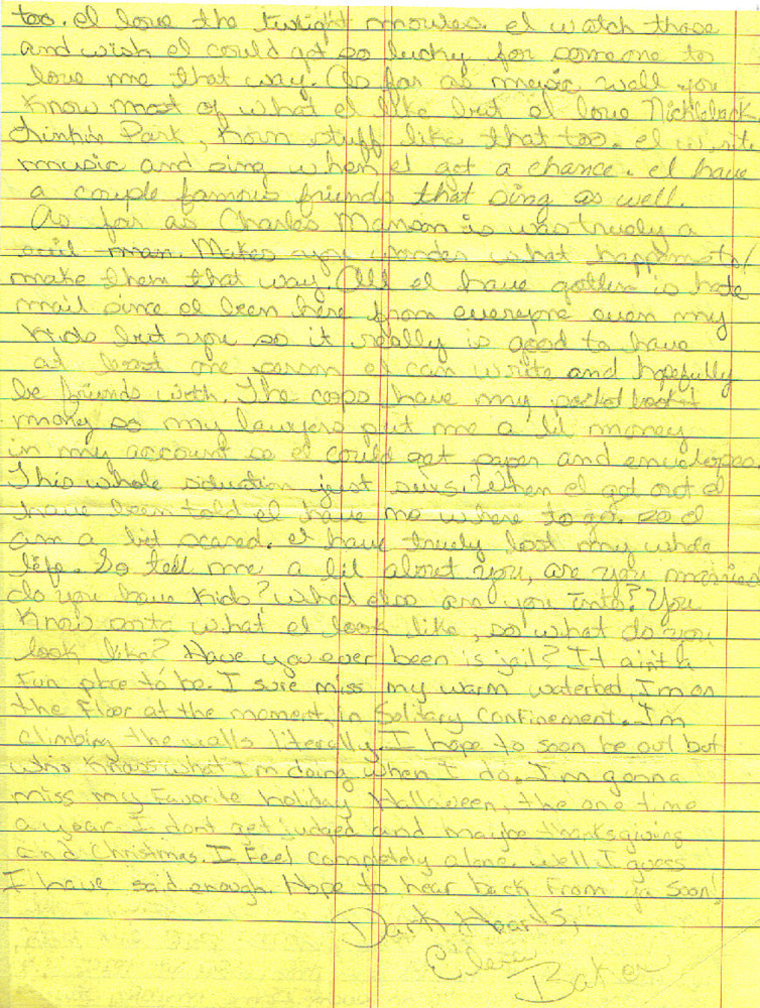 too. I love the twilight movies. I watch those
and wish I could get so lucky for someone to
love me that way. As far as music well you
know most of what I like but I love Nickleback,
Linkin Park, Korn stuff like that too. I write
music and sing when I get a chance. I have
a couple famous friends that sing as well.
As far as Charles Manson is was truely a
evil man. Makes you wonder what happens to/
make them that way. All I have gotten is hate
mail since I been here from everyone even my
kids but you so it really is good to have
at least one person I can write and hopefully
be friends with. The cops have my pocket book +
money so my lawyers put me a lil money
in my account so I could get paper and envelopes.
This whole situation just sux. When I get out I
have been told I have no where to go. so I
am a bit scared. I have truely lost my whole
life. So tell me a lil about you, are you married
do you have kids? What else are you into? You
know what I look like, so what do you
look like? Have you ever been is jail? It ain't a
fun place to be. I sure miss my warm waterbed, I'm on
the floor at the moment, in Solitary Confinement. I'm
climbing the walls literally. I hope to soon be out but
who knows what I'm doing when I do. I'm gonna
miss my Favorite holiday Halloween, the one time
a year I dont get judged and maybe thanksgiving
and Christmas. I Feel completely alone. Well I guess
I have said enough. Hope to hear back From ya soon!
Dark Hearts,
Baker